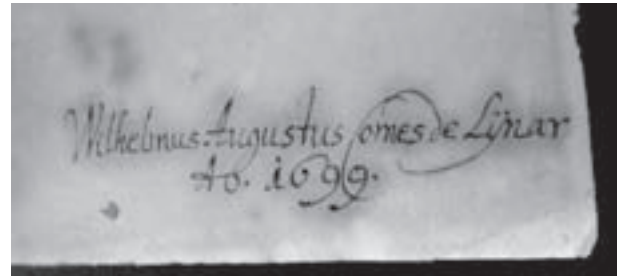 Wilhelmus Augustus Comes de Lÿnar
Ao. 1699.